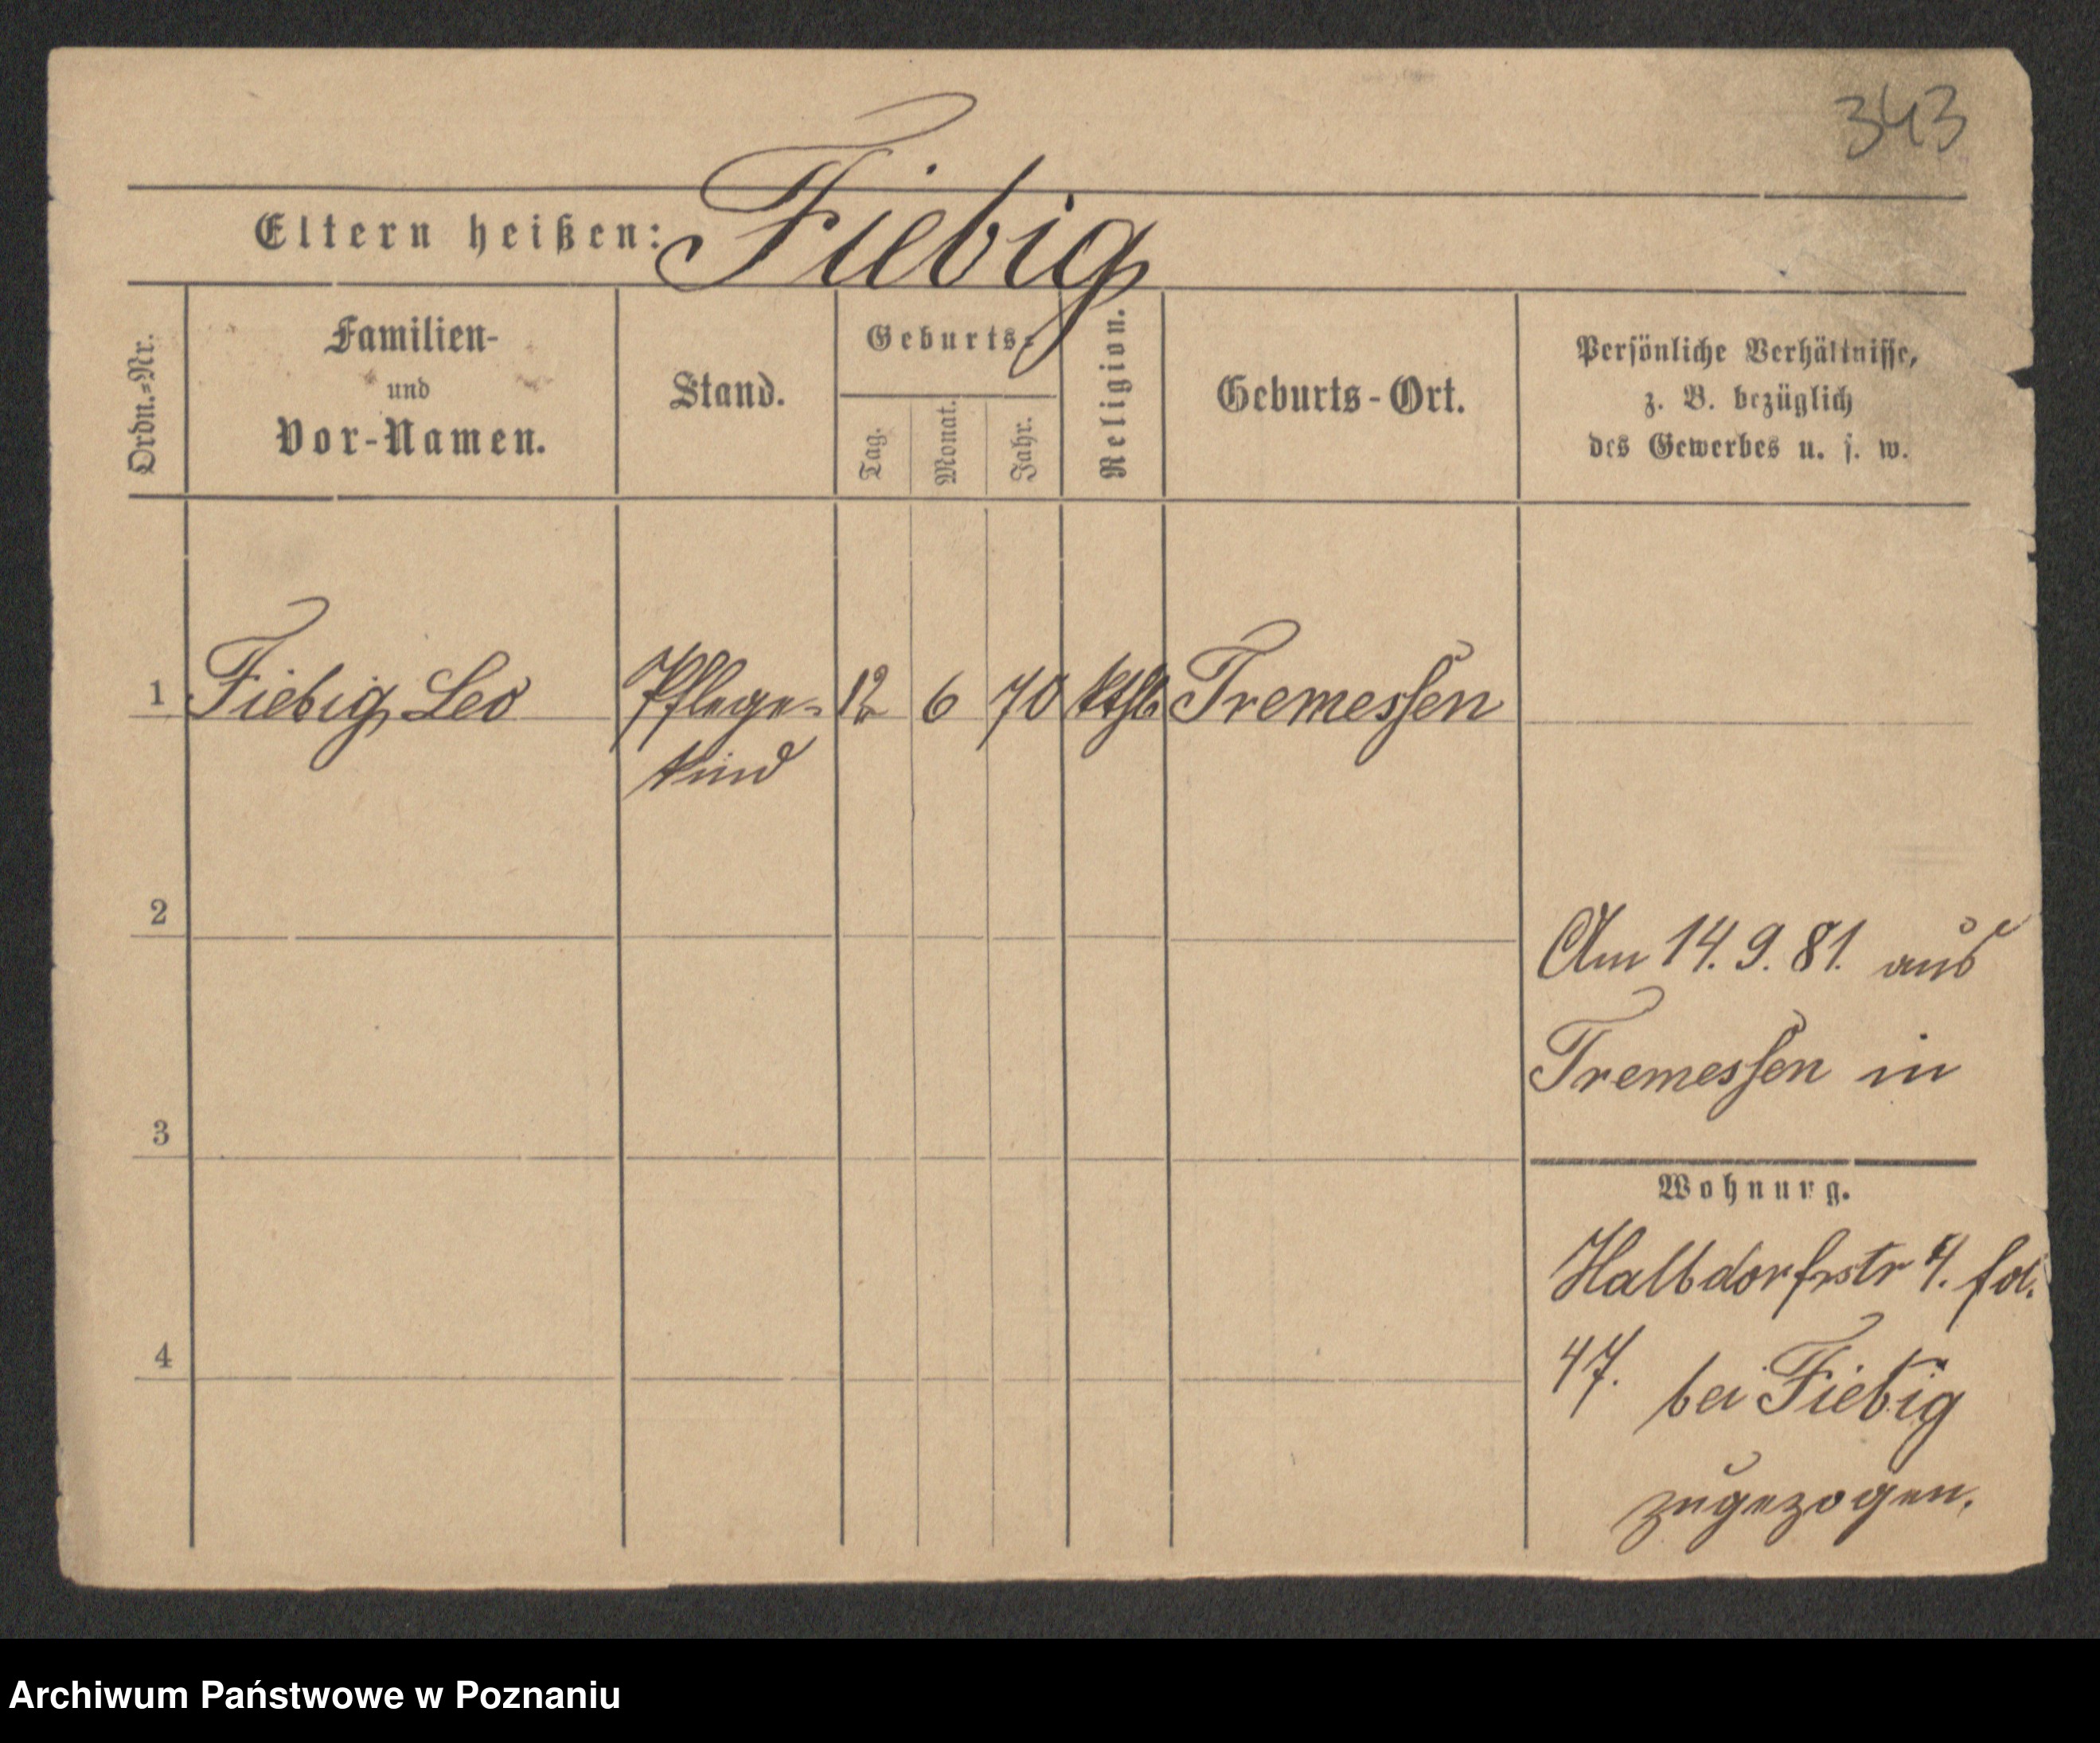 343
Eltern heißen: Fiebig
Ordn.=Nr.
Familien-
und
Vor-Namen.
Stand.
Geburts-
Tag.
Monat.
Jahr.
Religion.
Geburts-Ort.
Persönliche Verhältnisse,
z. B. bezüglich
des Gewerbes u. s. w.
1 Fiebig Leo Pflege= 12 6 70 kthl Tremessen
kind
2
Am 14. 9. 81. aus
Tremessen in
3
Wohnung.
Halbdorfstr 4. fol.
47. bei Fiebig
4
zugezogen.
Archiwum Państwowe w Poznaniu